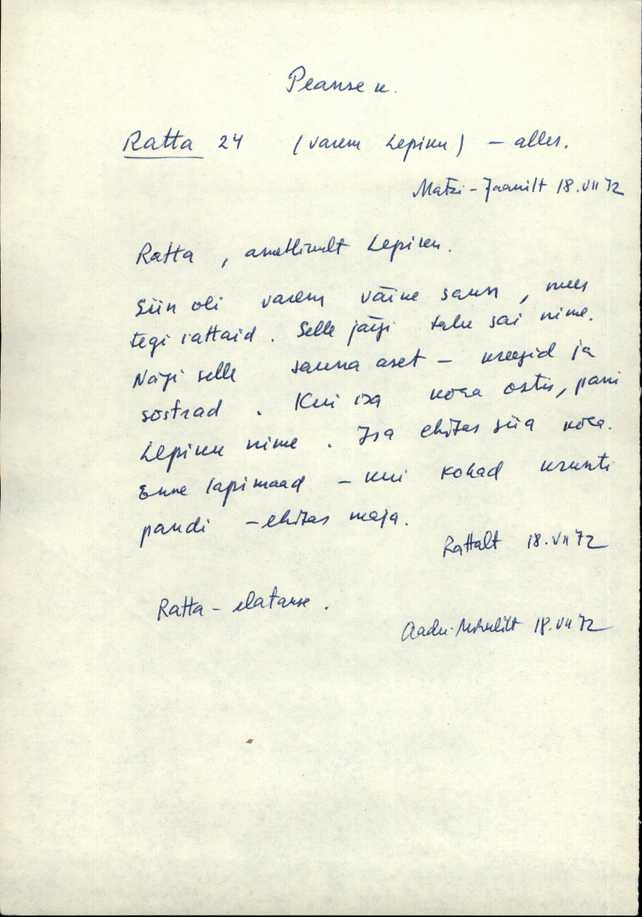 Peanse k.
Ratta 24 (varem Lepiku) – alles.
Matsi-Jaanilt 18.VII 72
Ratta, ametlikult Lepiku.
Siin oli varem väike saun, mees
tegi rattaid. Selle järgi talu sai nime.
Nägi selle sauna aset – kreegid ja
sõstrad. Kui isa koha ostis, pani
Lepiku nime. Isa ehitas siia koha.
Enne lapimaad – kui kohad krunti
pandi – ehitas maja.
Rattalt 18.VII 72
Ratta – elatakse.
Aadu-Mihklilt 18.VII 72